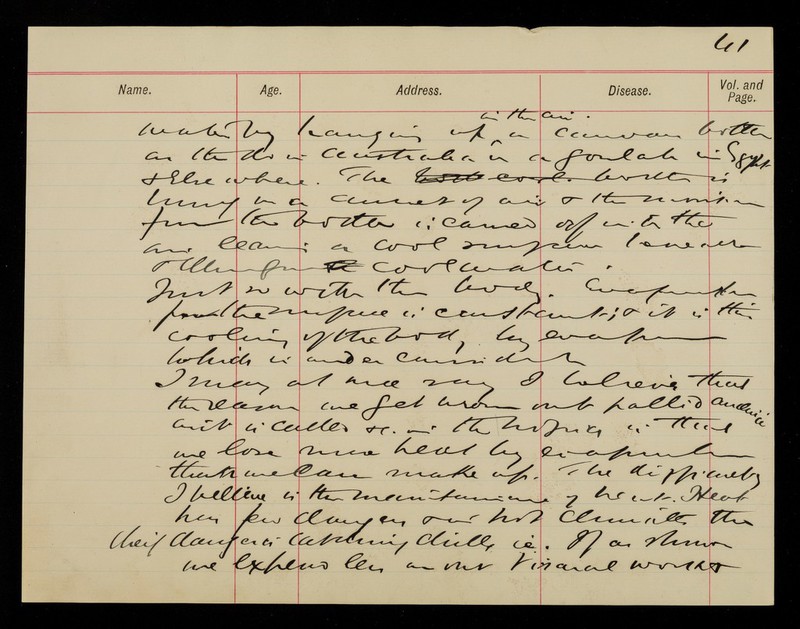 41
Name. Age. Address. Disease. Vol. and Page.
in the air.
water by hanging up in a canvas bottle
as the do in Australia in a goulah in Egypt
& Elsewhere. The bottle is
hung in a current of air & the
from the bottle is carried off into the
air leaving a cool surface
& therefore cool water.
Just so with the body. Evaporation
from the surface is constant; & it is this
cooling of the body by evaporation
which is under consideration
I may at once say I believe that
the reason we get worn out pallid anaemic
as it is called &c. in the tropics is that
we lose more heat by evaporation
than we can make up. The difficulty
I believe is the maintenance of heat. Heat
has few dangers & in hot climates the
chief danger is catching chills ie. If as shown
we expend less on our visceral works &